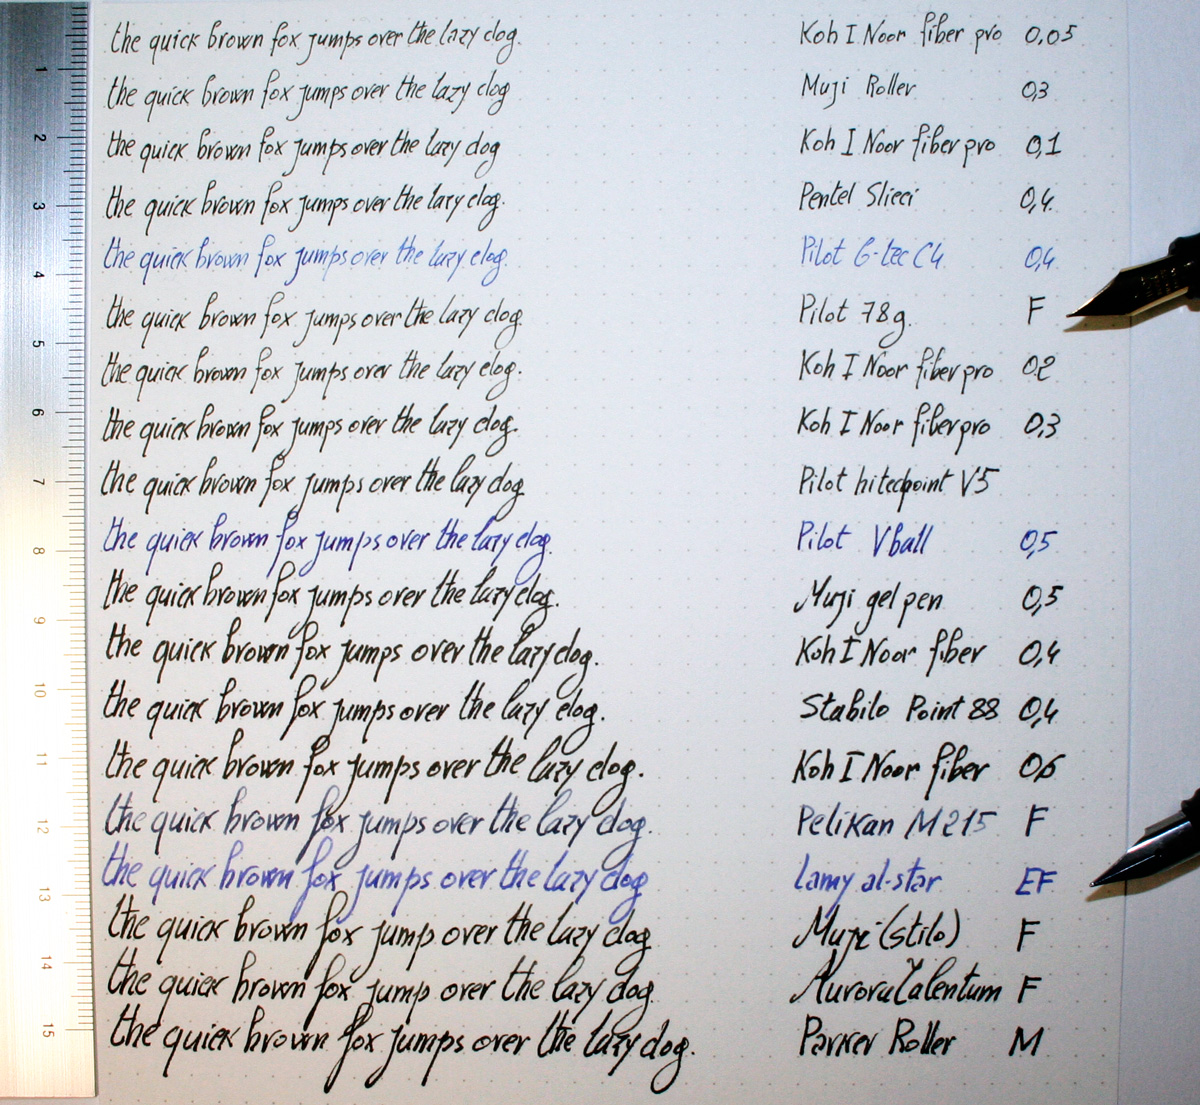 the quick brown fox jumps over the lazy dog. Koh I Noor fiber pro 0,05
1
the quick brown fox jumps over the lazy dog Muji Roller 0,3
2
the quick brown fox jumps over the lazy dog Koh I Noor fiber pro 0,1
3
the quick brown fox jumps over the lazy dog. Pentel Slicci 0,4
4
the quick brown fox jumps over the lazy dog. Pilot G-tec C4 0,4
the quick brown fox jumps over the lazy dog. Pilot 78g. F
5
the quick brown fox jumps over the lazy dog. Koh I Noor fiber pro 0,2
6
the quick brown fox jumps over the lazy dog. Koh I Noor fiber pro 0,3
7
the quick brown fox jumps over the lazy dog Pilot hitecpoint V5
8
the quick brown fox jumps over the lazy dog. Pilot Vball 0,5
9
the quick brown fox jumps over the lazy dog. Muji gel pen 0,5
the quick brown fox jumps over the lazy dog. Koh I Noor fiber 0,4
10
the quick brown fox jumps over the lazy dog. Stabilo Point 88 0,4
11
the quick brown fox jumps over the lazy dog. Koh I Noor fiber 0,6
12
the quick brown fox jumps over the lazy dog. Pelikan M215 F
13
the quick brown fox jumps over the lazy dog Lamy al-star EF
the quick brown fox jump over the lazy dog Muji (stilo) F
14
the quick brown fox jump over the lazy dog. Aurora Talentum F
15
the quick brown fox jumps over the lazy dog. Parker Roller M